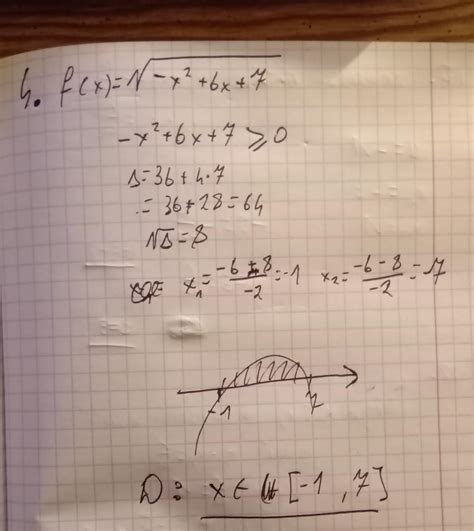 4. f(x)=√-x²+6x+7
-x²+6x+7 ⩾ 0
Δ=36+4·7
= 36+28=64
√Δ=8
x₁=(-6+8)/-2=-1 x₂=(-6-8)/-2=7
-1 7
D: x∈ [-1,7]